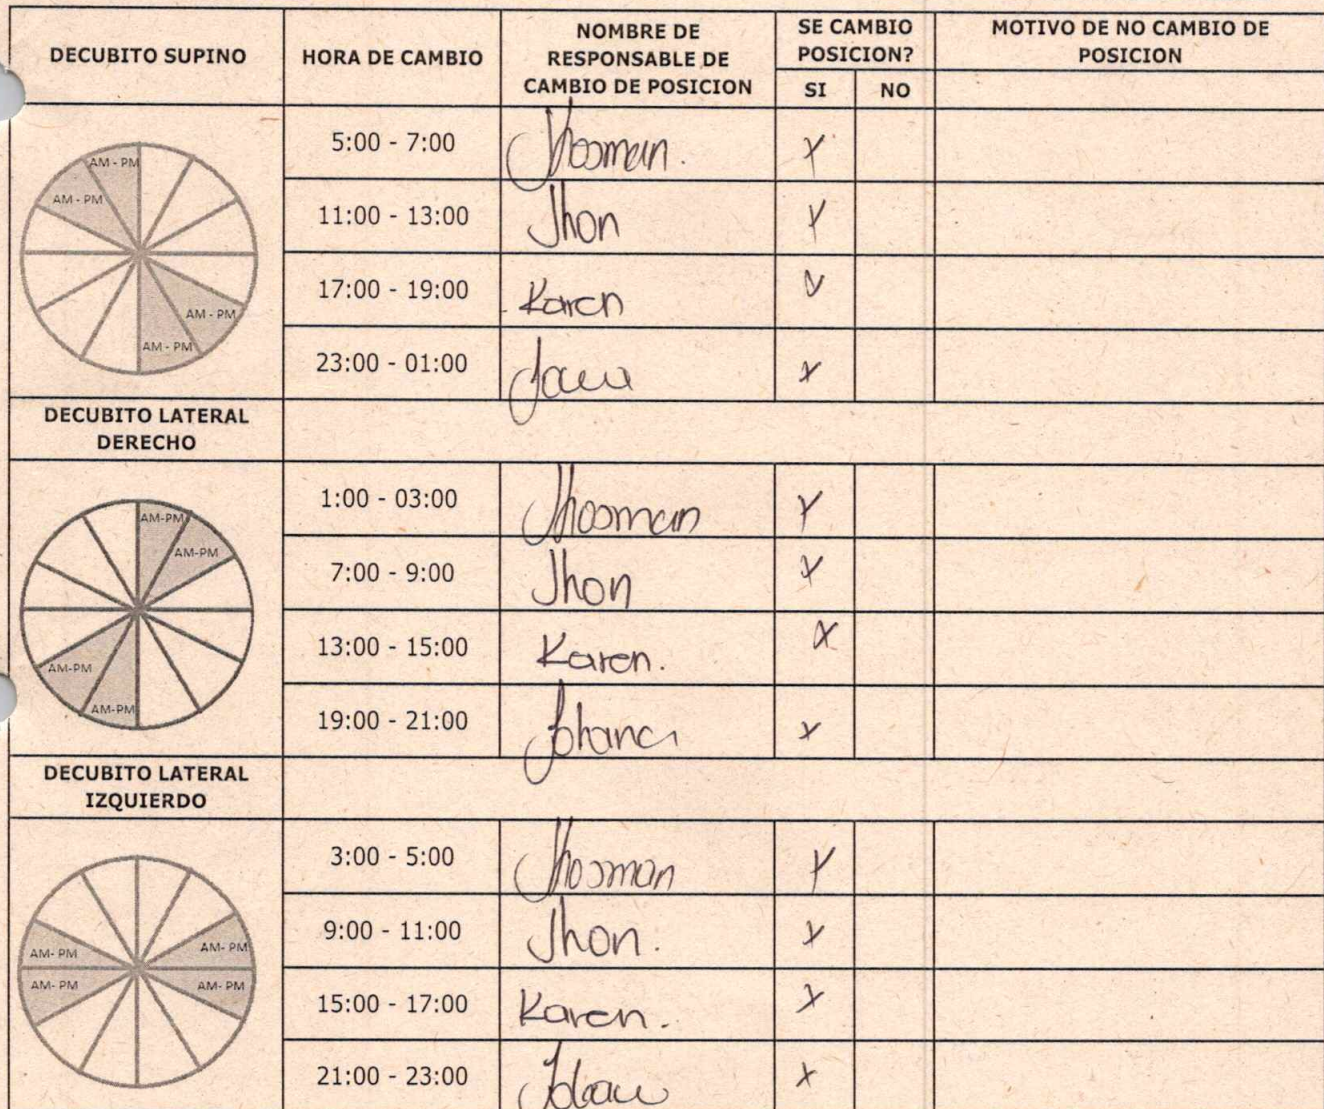 DECUBITO SUPINO HORA DE CAMBIO NOMBRE DE RESPONSABLE DE CAMBIO DE POSICION SE CAMBIO POSICION? MOTIVO DE NO CAMBIO DE POSICION
SI NO
AM - PM
AM - PM
AM - PM
AM - PM
5:00 - 7:00 Jhosman. X
11:00 - 13:00 Jhon X
17:00 - 19:00 Karen X
23:00 - 01:00 X
DECUBITO LATERAL
DERECHO
AM-PM
AM-PM
AM-PM
AM-PM
1:00 - 03:00 Jhosman X
7:00 - 9:00 Jhon X
13:00 - 15:00 Karen. X
19:00 - 21:00 Johana X
DECUBITO LATERAL
IZQUIERDO
AM- PM AM- PM
AM- PM AM- PM
3:00 - 5:00 Jhosman X
9:00 - 11:00 Jhon. X
15:00 - 17:00 Karen. X
21:00 - 23:00 X